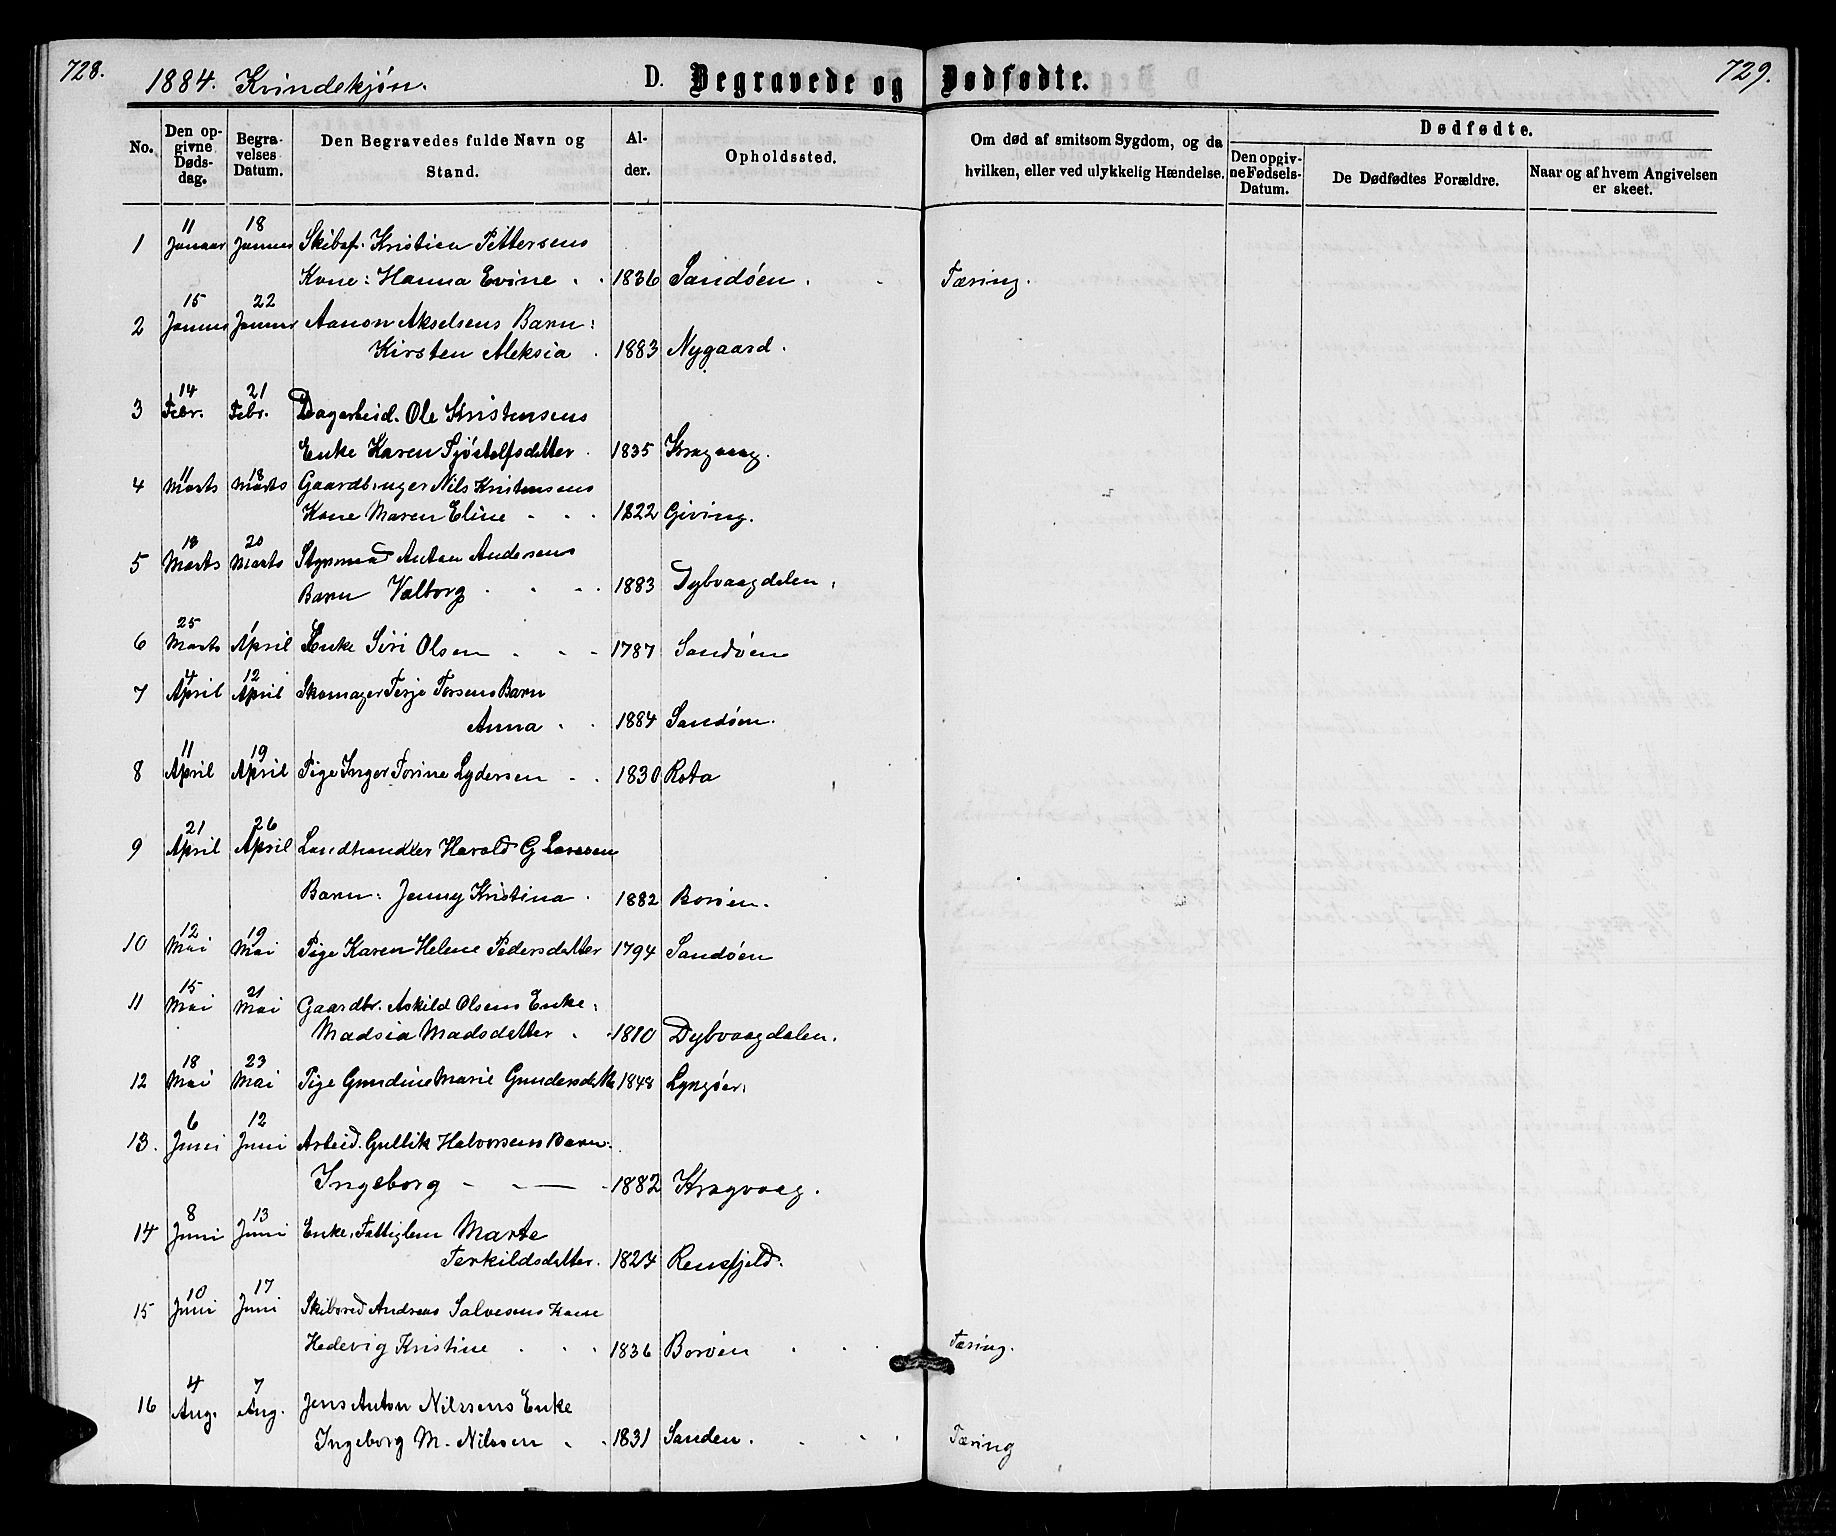 728.
1884. Kvindekjøn.
D. Begravede og Dødfødte.
729.
No.
Den opgivne Dødsdag.
Begravelses Datum.
Den Begravedes fulde Navn og Stand.
Alder.
Opholdssted.
Om død af smitsom Sygdom, og da hvilken, eller ved ulykkelig Hændelse.
Dødfødte.
Den opgivne Fødsels-Datum.
De Dødfødtes Forældre.
Naar og af hvem Angivelsen er skeet.
1 11 Januar 18 Januar Skibsf. Kristian Pettersens
Kone: Hanna Evine 1836 Sandøen. Tæring.
2 15 Januar 22 Januar Aanon Akselsens Barn:
Kirsten Aleksia 1883 Nygaard.
3 14 Febr. 21 Febr. Dagarbeid. Ole Kristensens
Enke Karen Tjøstolfsdatter. 1835 Kragvaag.
4 11 Marts 18 Marts Gaardbruger Nils Kristensens
Kone Maren Eline 1822 Giving.
5 13 Marts 20 Marts Styrmand Anton Andersens
Barn Valborg 1883 Dybvaagdalen.
6 25 Marts 1 April Enke Siri Olsen 1787 Sandøen
7 4 April 12 April Skomager Terje Torsens Barn
Anna 1884 Sandøen.
8 11 April 19 April Pige Inger Torine Lydersen 1830 Rota
9 21 April 26 April Landhandler Harald G Larssen
Barn: Jenny Kristina 1882 Borøen.
10 12 Mai 19 Mai Pige Karen Helene Pedersdatter 1794 Sandøen
11 15 Mai 21 Mai Gaardbr. Askild Olsens Enke:
Madsia Madsdatter 1810 Dybvaagdalen.
12 18 Mai 23 Mai Pige Gundine Marie Gundersdatter 1848 Lyngøer.
13. 6 Juni 12 Juni Arbeid. Gullik Halvorsens Barn
Ingeborg 1882 Kragvaag.
14 8 Juni 13 Juni Enke, Fattiglem Marte
Terkildsdatter. 1824 Rensfjeld.
15 10 Juni 17 Juni Skibsred Andreas Salvesens Kone
Hedevig Kristine 1836 Borøen Tæring.
16 4 Aug. 7 Aug. Jens Anton Nilssens Enke
Ingeborg M. Nilssen 1831 Sanden. Tæring